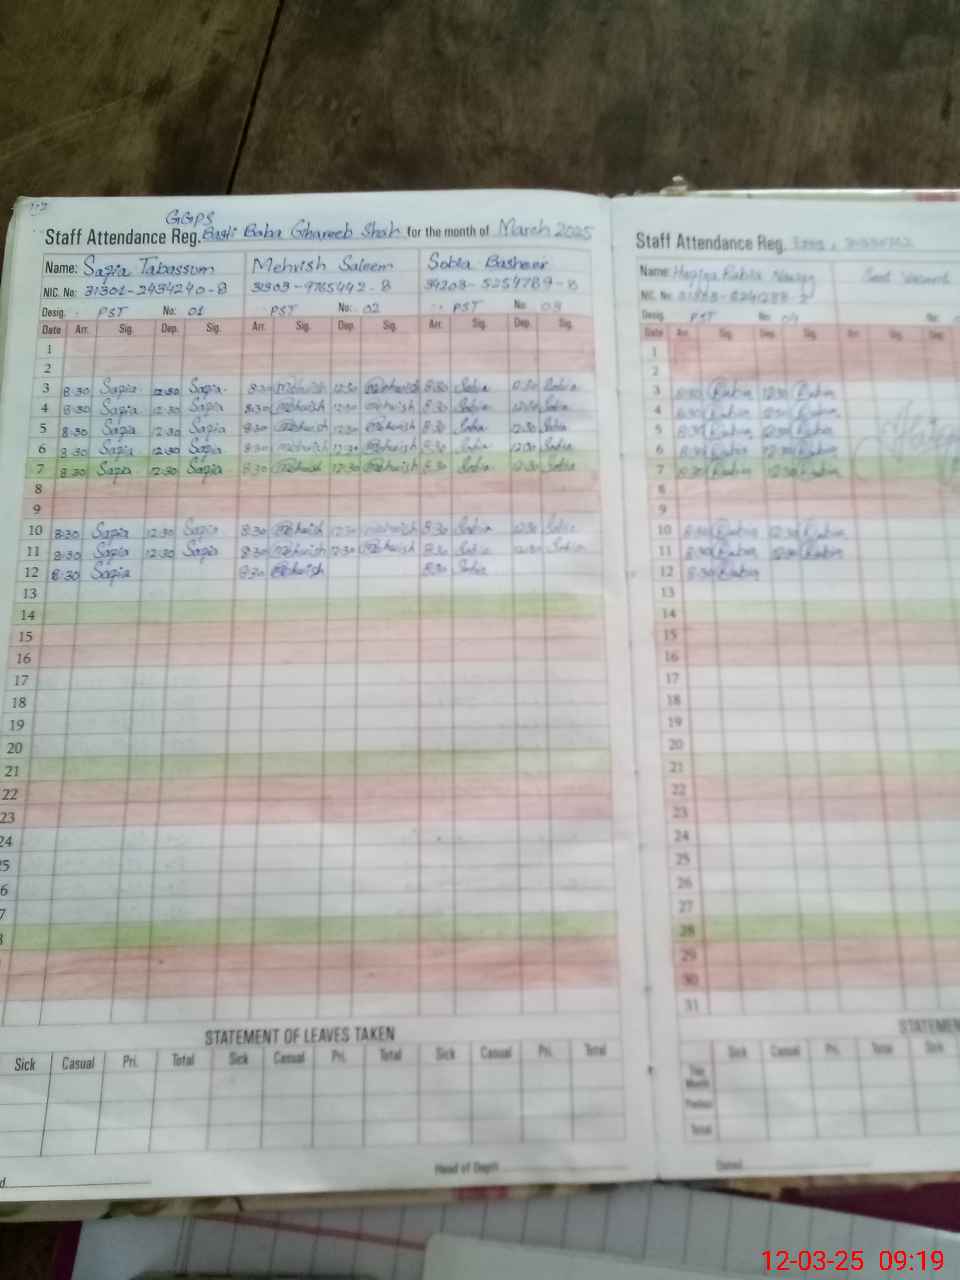 GGPS
Staff Attendance Reg. Basti Baba Ghareeb Shah for the month of March 2025
Name: Sazia Tabassum Mehvish Saleem Sobia Basheer
NIC. No: 31301-2434240-8 31303-9765492-8
Desig. PST No: 01 PST No: 02 PST No: 03
Date Arr. Sig. Dep. Sig. Arr. Sig. Dep. Sig. Arr. Sig. Dep. Sig.
1
2
3 8:30 Sazia 12:30 Sazia 8:30 Mehvish 12:30 Mehvish 8:30 Sobia 12:30 Sobia
4 8:30 Sazia 12:30 Sazia 8:30 Mehvish 12:30 Mehvish 8:30 Sobia 12:30 Sobia
5 8:30 Sazia 12:30 Sazia 8:30 Mehvish 12:30 Mehvish 8:30 Sobia 12:30 Sobia
6 8:30 Sazia 12:30 Sazia 8:30 Mehvish 12:30 Mehvish 8:30 Sobia 12:30 Sobia
7 8:30 Sazia 12:30 Sazia 8:30 Mehvish 12:30 Mehvish 8:30 Sobia 12:30 Sobia
8
9
10 8:30 Sazia 12:30 Sazia 8:30 Mehvish 12:30 Mehvish 8:30 Sobia 12:30 Sobia
11 8:30 Sazia 12:30 Sazia 8:30 Mehvish 12:30 Mehvish 8:30 Sobia 12:30 Sobia
12 8:30 Sazia 8:30 Mehvish 8:30 Sobia
13
14
15
16
17
18
19
20
21
22
23
24
5
6
7
STATEMENT OF LEAVES TAKEN
Sick Casual Pri. Total Sick Casual Pri. Total Sick Casual Pri. Total
Head of Deptt
Staff Attendance Reg.
Name: Rabia Seat Vacant
NIC. No:
Desig. PST No: 04 No:
Date Arr. Sig. Dep. Sig. Arr. Sig. Dep.
1
2
3 8:30 Rabia 12:30 Rabia
4 8:30 Rabia 12:30 Rabia
5 8:30 Rabia 12:30 Rabia
6 8:30 Rabia 12:30 Rabia
7 8:30 Rabia 12:30 Rabia
8
9
10 8:30 Rabia 12:30 Rabia
11 8:30 Rabia 12:30 Rabia
12 8:30 Rabia
13
14
15
16
17
18
19
20
21
22
23
24
25
26
27
28
29
30
31
STATEMEN
Sick Casual Pri. Total Sick
This Month
Total
Dated
12-03-25 09:19